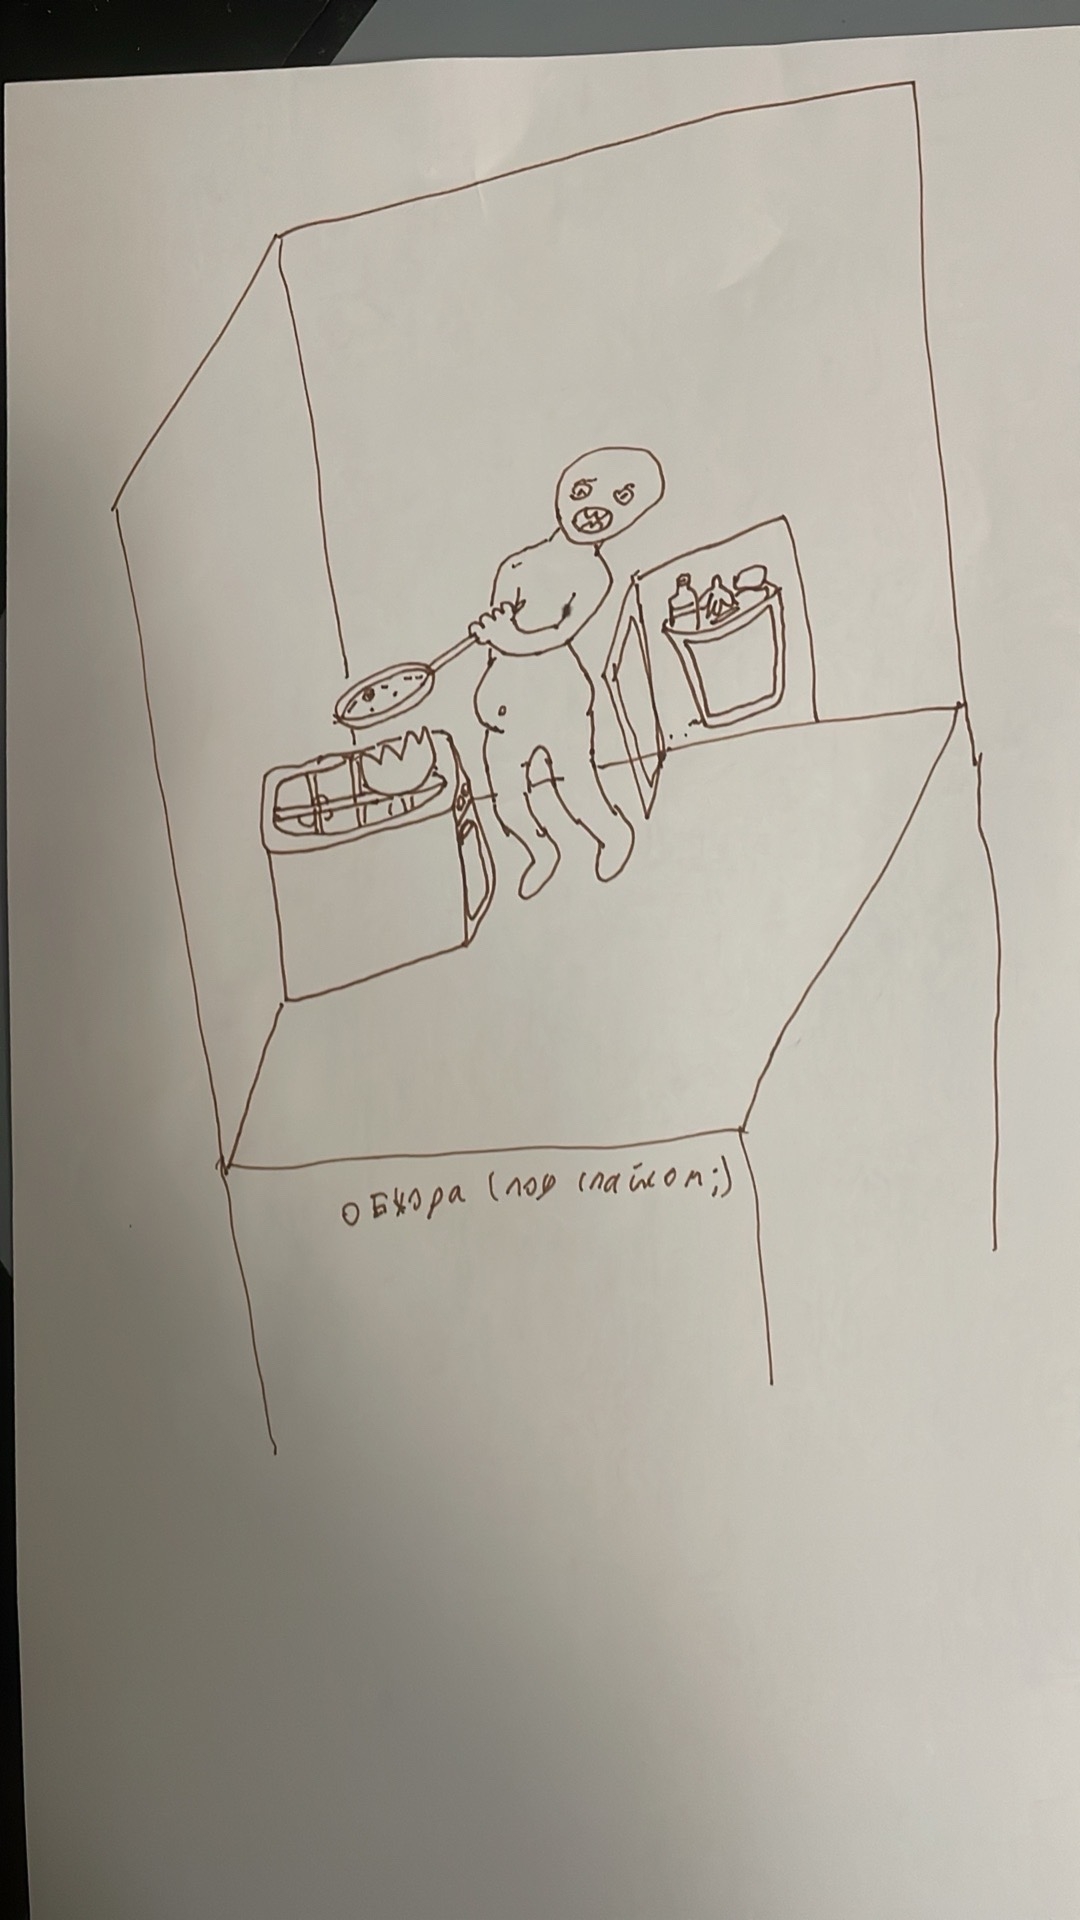 обжора (под спайсом;)